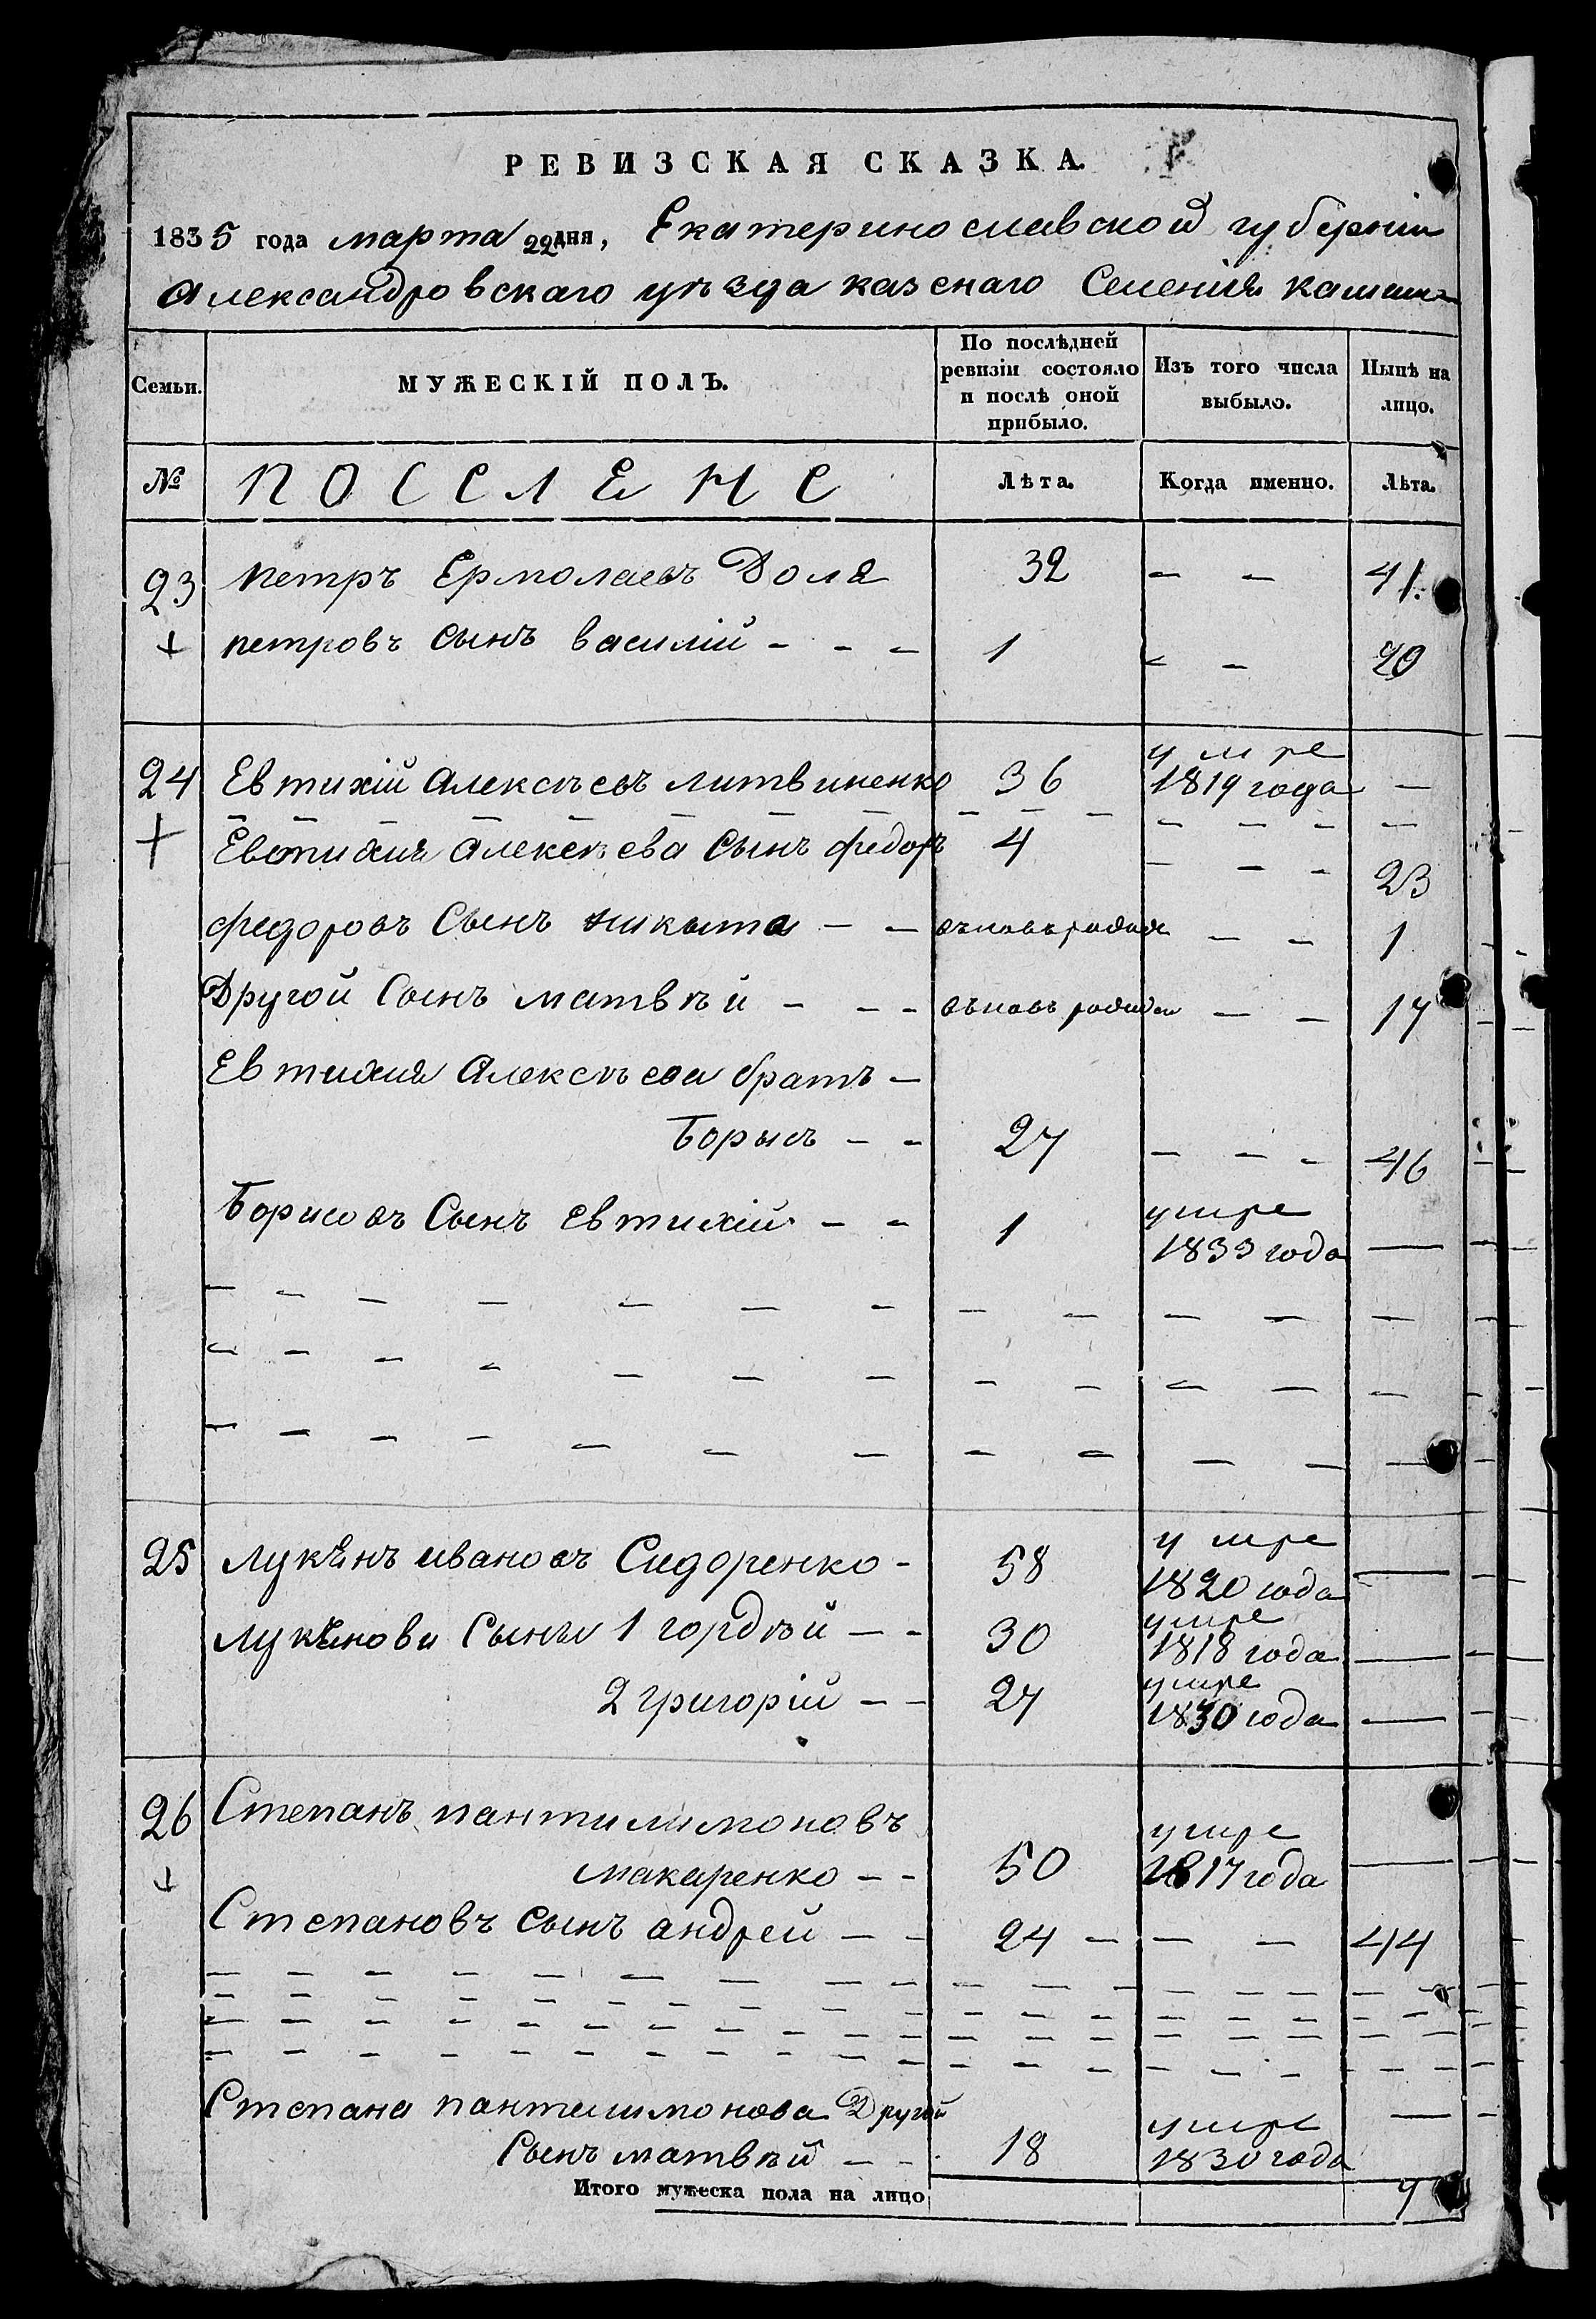 РЕВИЗСКАЯ СКАЗКА.
1835 года марта 22 дня, Екатеринославской губернiи
Александровскаго уѣзда казенаго Селенiя
Семьи. МУЖЕСКІЙ ПОЛЪ. По послѣдней ревизіи состояло и послѣ оной прибыло. Изъ того числа выбыло. Нынѣ на лицо.
№ ПОСЕЛЕНЕ Лѣта. Когда именно. Лѣта.
23 петръ Ермолаевъ Доля 32 — — 41.
+ петровъ Сынъ василiй — — — 1 — — 20
24 Евтихiй Алексѣевъ литвиненко 36 умре 1819 года —
+ Евтихия Алексѣева Сынъ федоръ 4 — — — 23
федоровъ Сынъ никыта — — вновь родился — — 1
Другой Сынъ матвѣй — — — вновь родился — — 17
Евтихия Алексѣева братъ —
Борысъ — — 27 — — — 46
Борисовъ Сынъ Евтихiй — — 1 умре 1833 года —
25 лукѣянъ ивановъ Сидоренко - 58 умре 1820 года —
лукѣянови Сыны 1 гордѣй — — 30 умре 1818 года —
2 григорiй — — 27 умре 1830 года —
26 Степанъ пантилимоновъ
+ макаренко — — 50 умре 1817 года —
Степановъ Сынъ андрей — — 24 — — — 44
Степана пантилимонова Другой
Сынъ матвѣй — — 18 умре 1830 года —
Итого мужеска пола на лицо 7